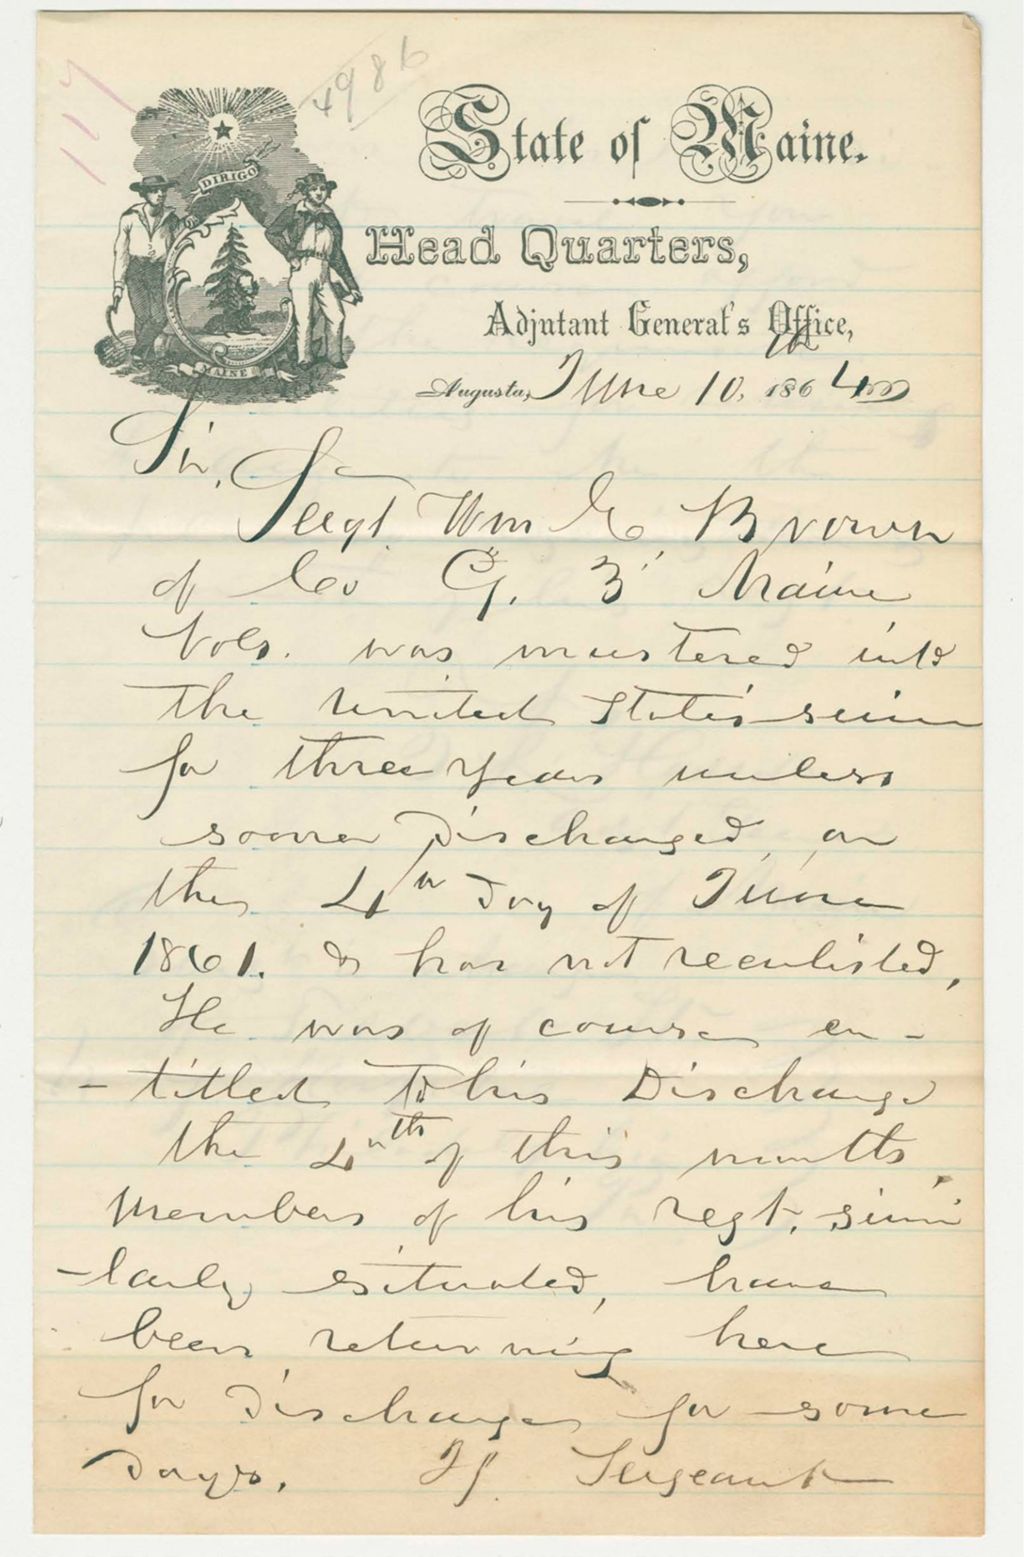 117
4986
DIRIGO
MAINE
State of Maine.
Head Quarters,
Adjutant General's Office,
Augusta, June 10th, 1864
Sir,
Sergt. Wm E Brown
of Co G. 3" Maine
Vols. was mustered into
the United States servic
for three years unless
sooner discharged, on
the 4" day of June
1861. & has not reenlisted,
He was of course en-
-titled to his Discharge
the 4"th of this month,
Members of his regt. simi
-larly situated, have
been returning here
for discharge for some
days. If Sergeant